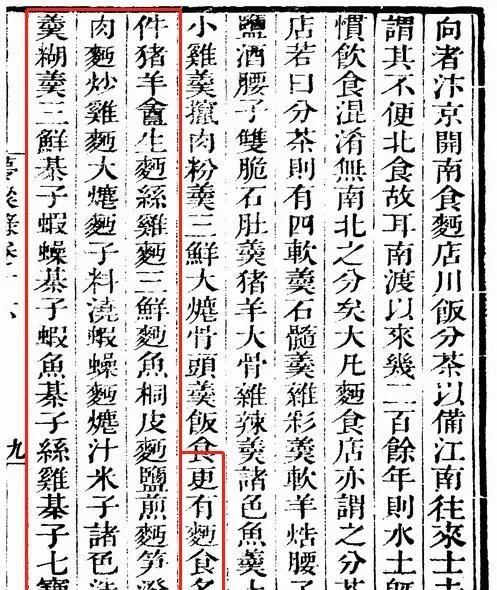 向者汴京開南食麫店川飯分茶以備江南往來士
謂其不便北食故耳南渡以來幾二百餘年則水土既
慣飲食混淆無南北之分矣大凡麫食店亦謂之分
店若曰分茶則有四軟羹石髓羹雜彩羹軟羊焅腰子
鹽酒腰子雙脆石肚羹猪羊大骨雜辣羹諸色魚羹大
小雞羹攛肉粉羹三鮮大熝骨頭羹飯食更有麫食名
件猪羊盦生麫絲雞麫三鮮麫魚桐皮麫鹽煎麫筍潑
肉麫炒雞麫大熝麫子料澆蝦燥麫熝汁米子諸色
羹糊羹三鮮棊子蝦燥棊子蝦魚棊子絲雞棊子七寶
九